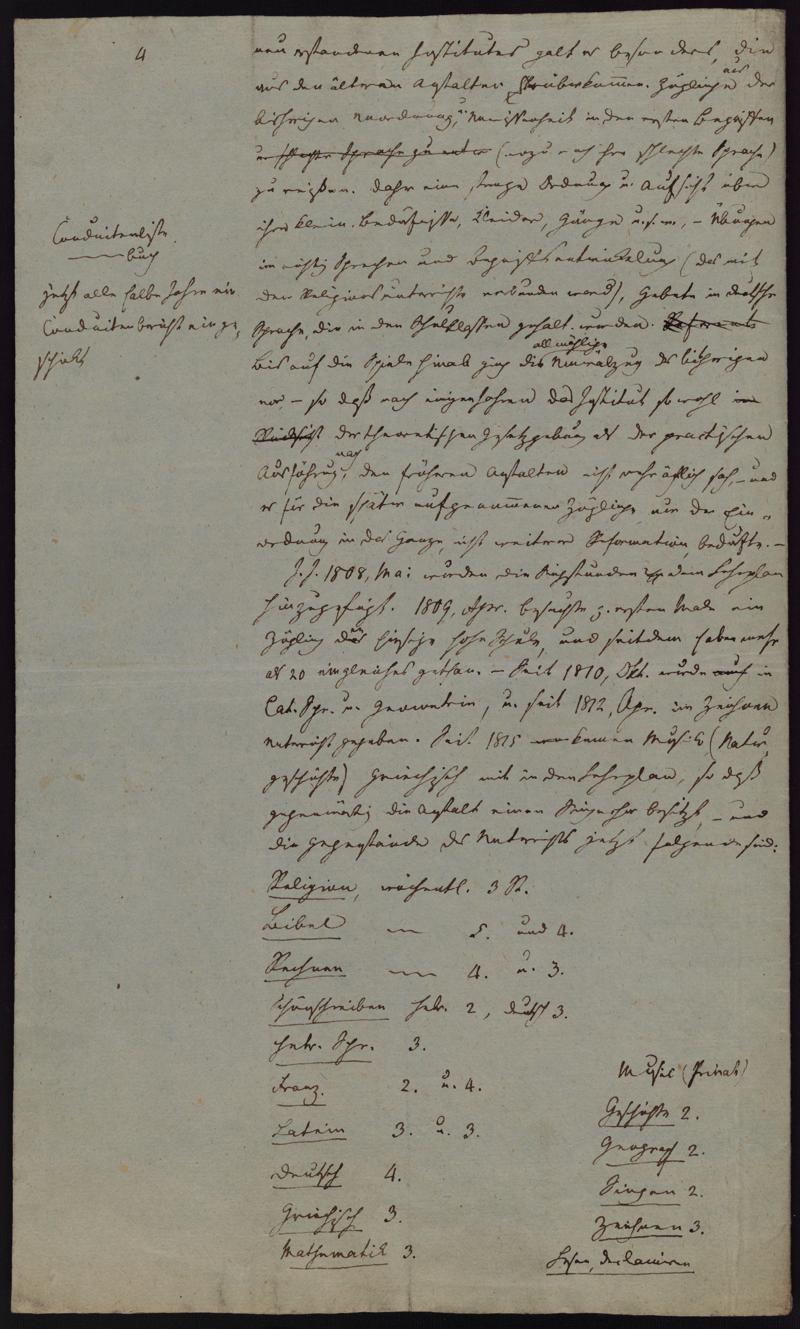 4
neu erstandenen Institutes galt es besonders, die
aus den älteren Anstalten überkommen. Zöglinge aus der
bisherigen Unordnung, Unwissenheit in den ersten Begriffen
(wozu auch ihre schlechte Sprache)
zu reißen. Daher eine strenge Ordnung u. Aufsicht über
ihre klein. Bedürfnisse, Kleider, Gänge u.s.w., – Übungen
im richtig Sprechen und Begriffsentwickelung (das mit
dem Religionsunterrichte verbunden ward), Gebete in deutscher
Sprache, die in den Schulklassen gehalt. wurden.
Bis auf die Spiele hinab ging die allmählige Umwälzung des bisherigen
vor – so daß nach einigen Jahren das Institut sowohl in
Rücksicht der theoretischen Gesetzgebung als der practischen
Ausführung nach, den früheren Anstalten nicht mehr ähnlich sah, – und
es für die später aufgenommenen Zöglinge nur der Ein-
ordnung in das Ganze, nicht weiterer Reformation bedurfte. –
I. J. 1808, Mai wurden die Singstunden dem Lehrplan
hinzugefügt. 1809, Apr. besuchte z. ersten Male ein
Zögling die hiesige hohe Schule, und seitdem haben mehr
als 20 ein gleiches gethan. – Seit 1810, Okt. wurde auch in
Lat. Spr. u. Geometrie, u. seit 1812, Apr. im Zeichnen
Unterricht gegeben. Seit 1815 kamen Musik (Natur
geschichte) Griechisch mit in den Lehrplan, so daß
gegenwärtig die Anstalt einen Singechor besitzt, – und
die Gegenstände des Unterrichts jetzt folgende sind:
Conduitenliste.
—— buch
jetzt alle halbe Jahre ein
Conduitenbericht einge,
schickt
Religion, wöchentl. 3 St.
Bibel — 5. und 4.
Rechnen — 4. u. 3.
Schönschreiben hebr. 2, deutsch 3.
Hebr. Spr. 3.
Franz. 2. u. 4.
Latein 3. u. 3.
Deutsch 4.
Griechisch 3.
Mathematik 3.
Musik (Privat)
Geschichte 2.
Geograph 2.
Singen 2.
Zeichnen 3.
Lesen, declamiren